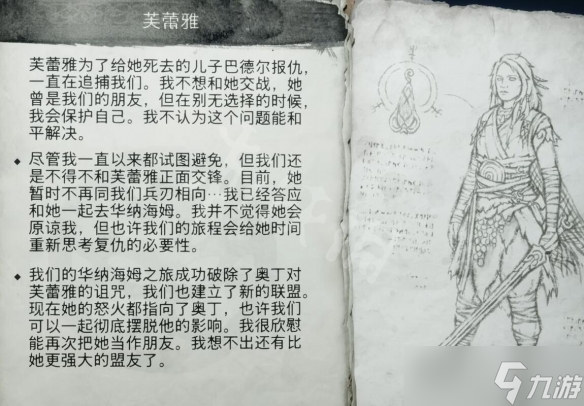 芙蕾雅
芙蕾雅为了给她死去的儿子巴德尔报仇，
一直在追捕我们。我不想和她交战，她
曾是我们的朋友，但在别无选择的时候，
我会保护自己。我不认为这个问题能和
平解决。
◆ 尽管我一直以来都试图避免，但我们还
是不得不和芙蕾雅正面交锋。目前，她
暂时不再同我们兵刃相向…我已经答应
和她一起去华纳海姆。我并不觉得她会
原谅我，但也许我们的旅程会给她时间
重新思考复仇的必要性。
◆ 我们的华纳海姆之旅成功破除了奥丁对
芙蕾雅的诅咒，我们也建立了新的联盟。
现在她的怒火都指向了奥丁，也许我们
可以一起彻底摆脱他的影响。我很欣慰
能再次把她当作朋友。我想不出还有比
她更强大的盟友了。
九游